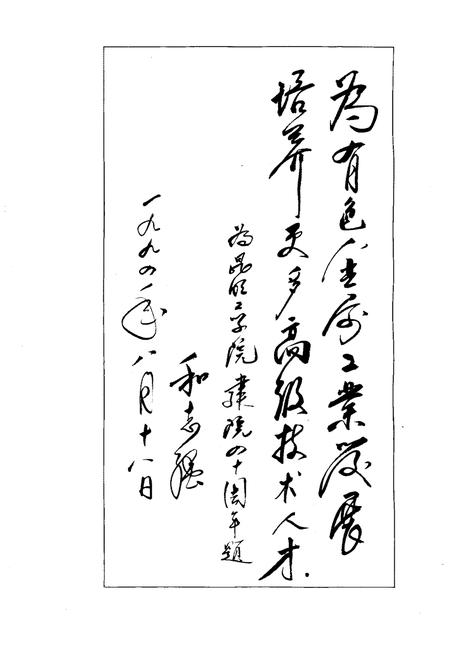 为有色金属工业发展
培养更多高级技术人才.
为昆明工学院建院四十周年题
和志强
一九九四年八月十八日